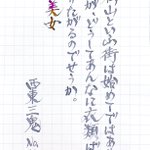 山といふ山街は始めてではあ
がどうしてあんなに衣類ば
たがるのでせうか。
美女
西東三鬼 No.